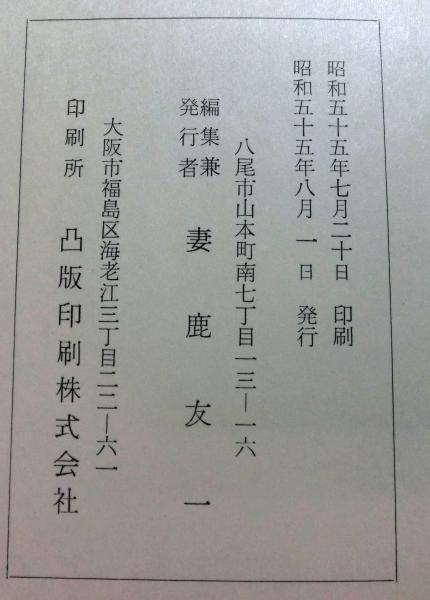 昭和五十五年七月二十日 印刷
昭和五十五年八月 一 日 発行
八尾市山本町南七丁目一三―一六
編集兼
発行者 妻鹿友一
大阪市福島区海老江三丁目二二―六一
印刷所 凸版印刷株式会社